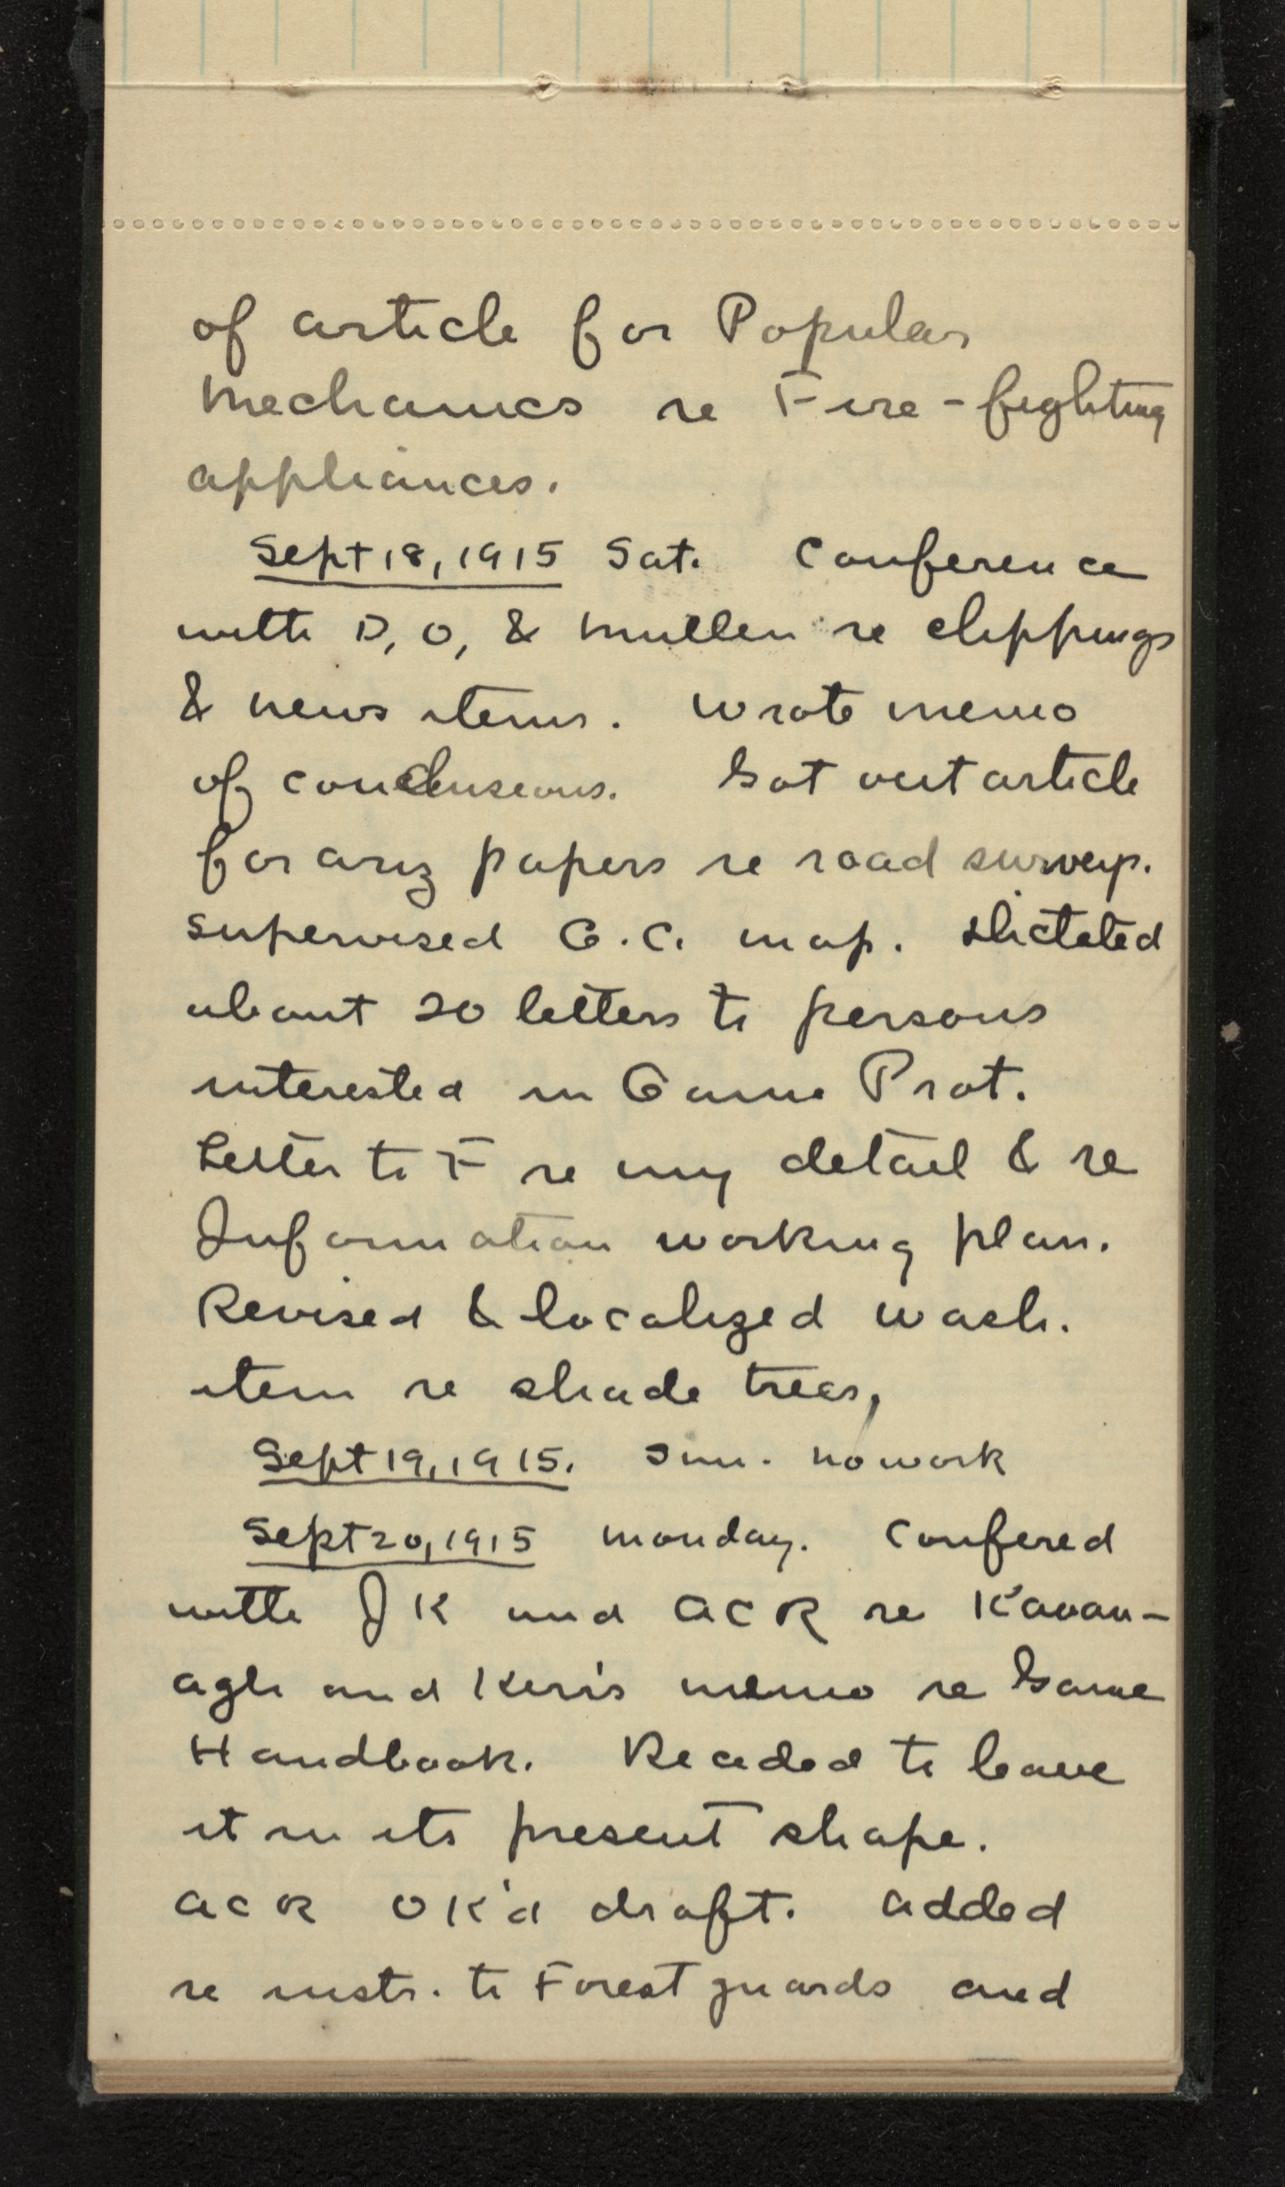 of article for Popular
Mechanics re Fire-fighting
appliances.
Sept 18, 1915 Sat. Conference
with D, O, & Mullen re clippings
& news items. Wrote memo
of conclusions. Got out article
for Ariz papers re road survey.
Supervised G.C. map. Dictated
about 20 letters to persons
interested in Game Prot.
Letter to F re my detail & re
Information working plan.
Revised & localized Wash.
item re shade trees,
Sept 19, 1915. Sun. No work
Sept 20, 1915 Monday. Confered
with JK and ACR re Kavan-
agh and Kerr's memo re Game
Handbook. Decided to leave
it in its present shape.
ACR OK'd draft. Added
re instr. to Forest guards and